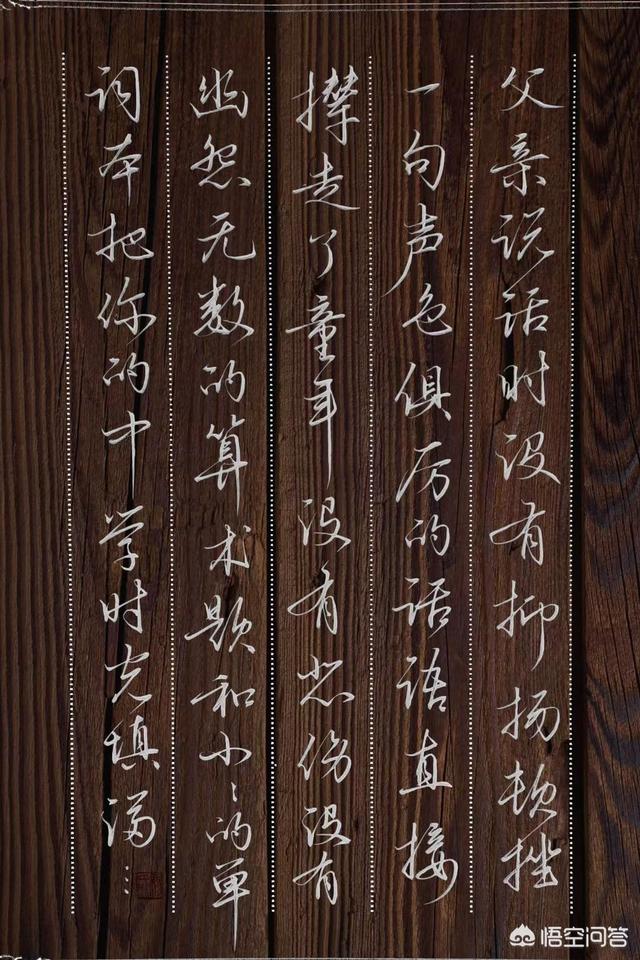 父亲说话时没有抑扬顿挫
一句声色俱厉的话语直接
撵走了童年没有悲伤没有
幽怨无数的算术题和小小的单
词本把你的中学时光填满……
悟空问答